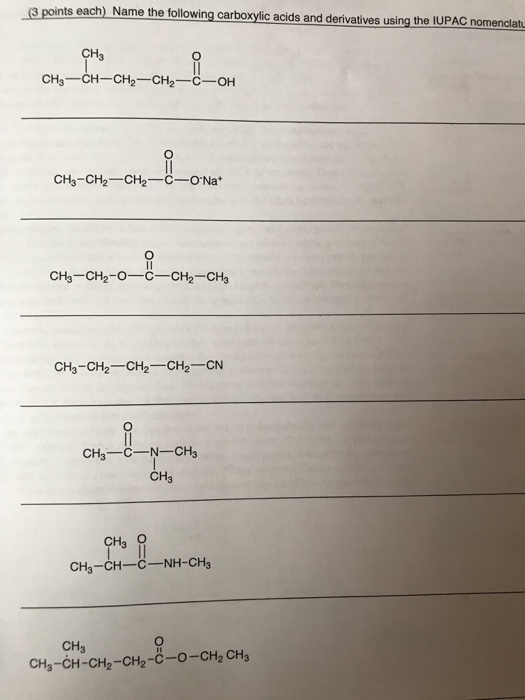 (3 points each) Name the following carboxylic acids and derivatives using the IUPAC
CH₃ O
CH₃—CH—CH₂—CH₂—C—OH
O
CH₃-CH₂—CH₂—C—O⁻Na⁺
O
CH₃—CH₂-O—C—CH₂—CH₃
CH₃-CH₂—CH₂—CH₂—CN
O
CH₃—C—N—CH₃
CH₃
CH₃ O
CH₃-CH—C—NH-CH₃
CH₃ O
CH₃-CH-CH₂-CH₂-C-O-CH₂ CH₃